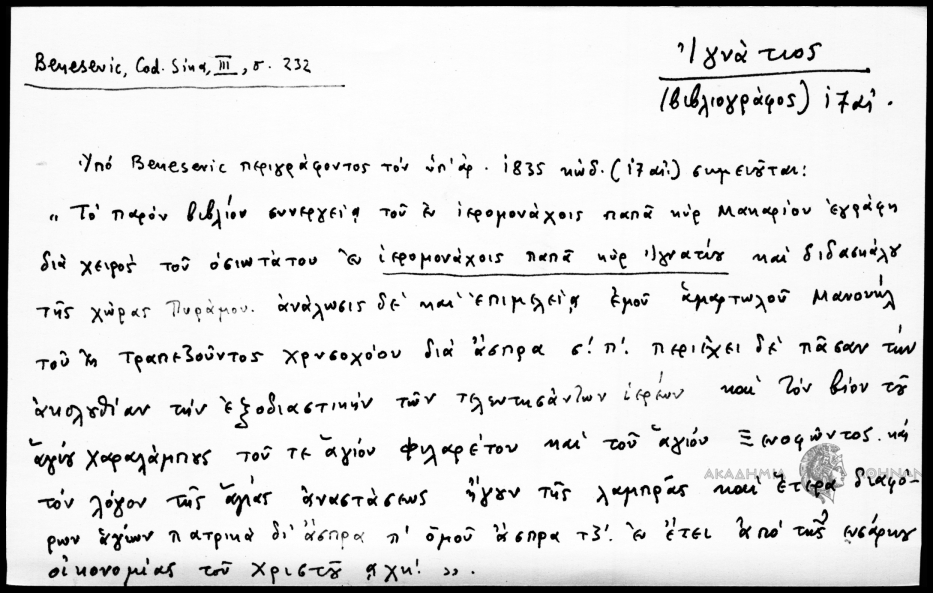 Benesevic, Cod. Sina, III, σ. 232
Ἰγνάτιος
(βιβλιογράφος) ι7αἰ.
Ὑπό Benesevic περιγράφοντος τόν ὑπ' ἀρ. 1835 κώδ. (ι7αἰ.) σημειοῦται:
„ Τό παρόν βιβλίον συνεργείᾳ τοῦ ἐν ἱερομονάχοις παπᾶ κύρ Μακαρίου ἐγράφη
διά χειρός τοῦ ὁσιωτάτου ἐν ἱερομονάχοις παπᾶ κύρ Ἰγνατίου καί διδασκάλου
τῆς χώρας Πυράμου. ἀνάλωσις δέ καί ἐπιμελείᾳ ἐμοῦ ἁμαρτωλοῦ Μανουήλ
τοῦ ἐκ Τραπεζοῦντος χρυσοχόου διά ἄσπρα σ! π'. περιέχει δέ πᾶσαν τήν
ἀκολουθίαν τήν ἐξοδιαστικήν τῶν τελευτησάντων ἱερέων καί τόν βίον τοῦ
ἁγίου Χαραλάμπους τοῦ τε ἁγίου Φιλαρέτου καί τοῦ ἁγίου Ξενοφῶντος. καί
τόν λόγον τῆς ἁγίας ἀναστάσεως ἤγουν τῆς λαμπρᾶς καί ἕτερα διαφό-
ρων ἁγίων πατρικά δι' ἄσπρα π' ὁμοῦ ἄσπρα τξ'. ἐν ἔτει ἀπό τῆς ἐνσάρκου
οἰκονομίας τοῦ Χριστοῦ ͵αχκ! ».
ΑΚΑΔΗΜΙΑ ΑΘΗΝΩΝ